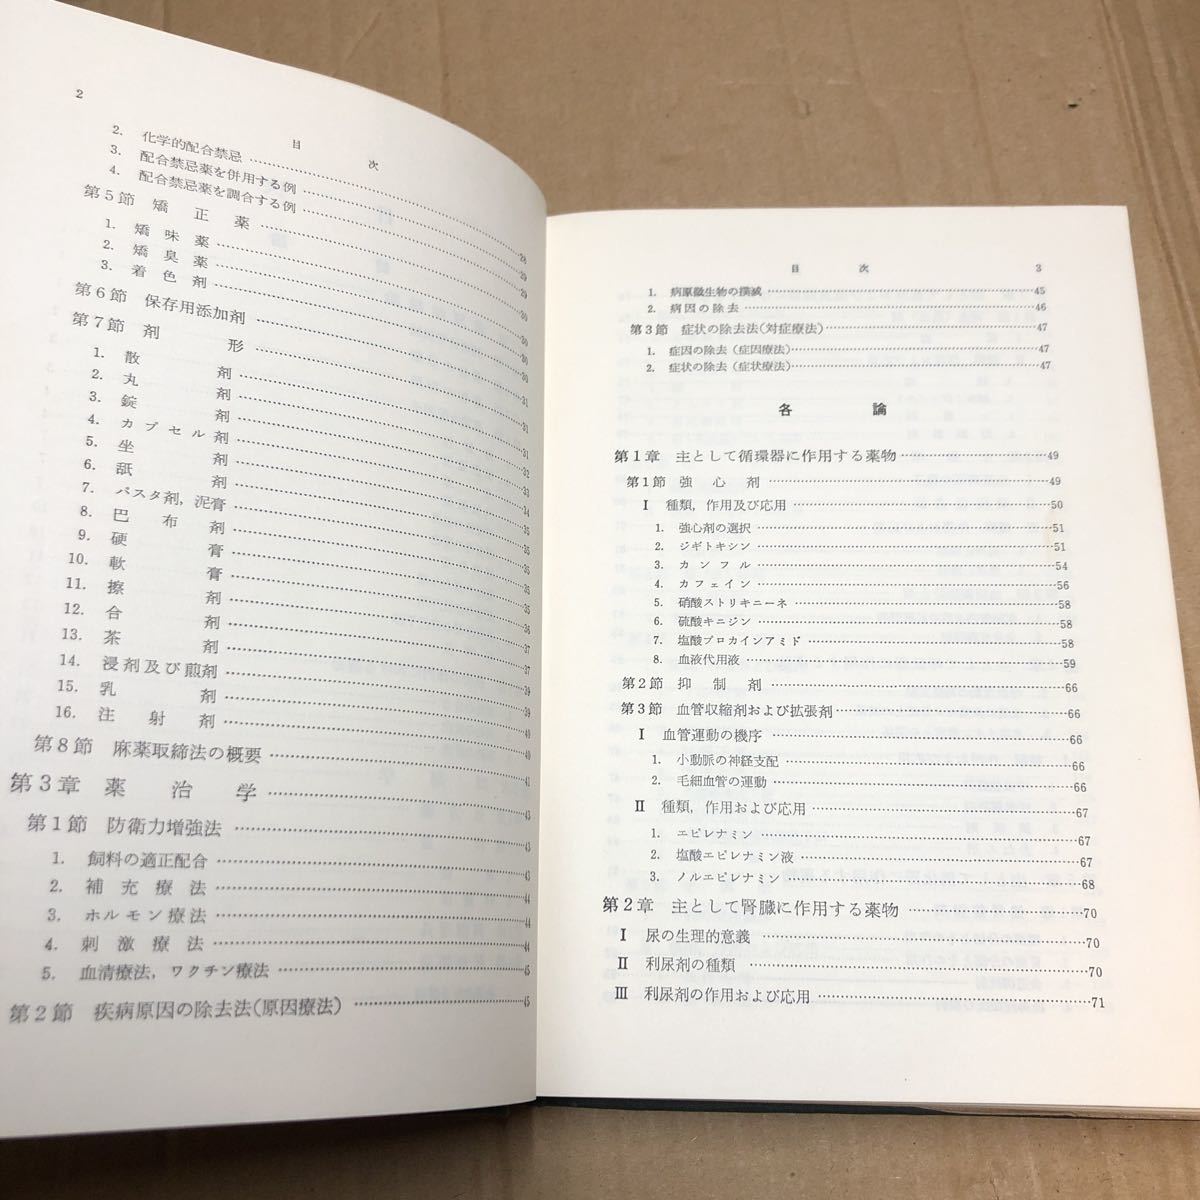 2
目次
2. 化学的配合禁忌
3. 配合禁忌薬を併用する例
4. 配合禁忌薬を調合する例
第5節 矯正薬 28
1. 矯味薬 29
2. 矯臭薬 29
3. 着色剤 30
第6節 保存用添加剤 30
第7節 剤形 30
1. 散剤 31
2. 丸剤 31
3. 錠剤 31
4. カプセル剤 32
5. 坐剤 33
6. 舐剤 34
7. パスタ剤，泥膏 35
8. 巴布剤 35
9. 硬膏 35
10. 軟膏 35
11. 擦剤 36
12. 合剤 37
13. 茶剤 37
14. 浸剤及び煎剤 39
15. 乳剤 39
16. 注射剤 40
第8節 麻薬取締法の概要 41
第3章 薬治学 43
第1節 防衛力増強法 43
1. 飼料の適正配合 43
2. 補充療法 44
3. ホルモン療法 44
4. 刺激療法 44
5. 血清療法，ワクチン療法 45
第2節 疾病原因の除去法(原因療法) 45
目次 3
1. 病原微生物の撲滅 45
2. 病因の除去 46
第3節 症状の除去法(対症療法) 47
1. 症因の除去（症因療法) 47
2. 症状の除去（症状療法) 47
各論
第1章 主として循環器に作用する薬物 49
第1節 強心剤 49
Ⅰ 種類，作用及び応用 50
1. 強心剤の選択 51
2. ジギトキシン 51
3. カンフル 54
4. カフェイン 56
5. 硝酸ストリキニーネ 58
6. 硫酸キニジン 58
7. 塩酸プロカインアミド 58
8. 血液代用液 59
第2節 抑制剤 66
第3節 血管収縮剤および拡張剤 66
Ⅰ 血管運動の機序 66
1. 小動脈の神経支配 66
2. 毛細血管の運動 66
Ⅱ 種類，作用および応用 67
1. エピレナミン 67
2. 塩酸エピレナミン液 67
3. ノルエピレナミン 68
第2章 主として腎臓に作用する薬物 70
Ⅰ 尿の生理的意義 70
Ⅱ 利尿剤の種類 70
Ⅲ 利尿剤の作用および応用 71